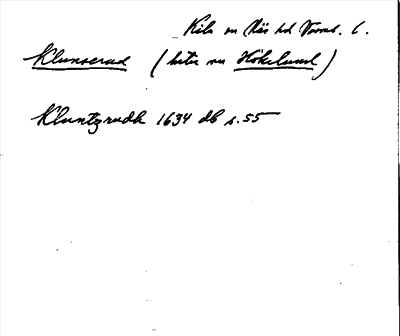 Kila sn Näs hd Värml. l.
Klunserud (heter nu Höklund)
Kluntzrudh 1634 db s. 55